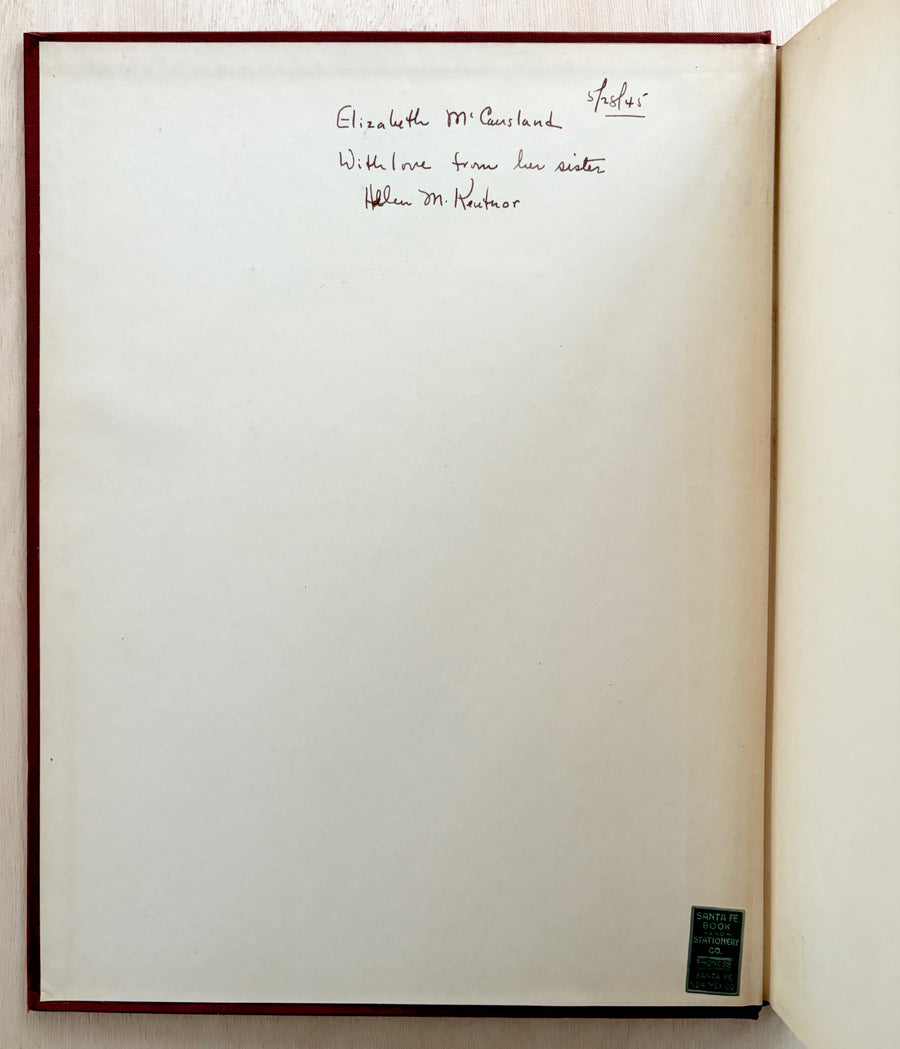 5/28/45
Elizabeth McCausland
With love from her sister
Helen M. Kentnor
SANTA FE
BOOK
AND
STATIONERY
CO.
SANTA FE
NEW MEXICO